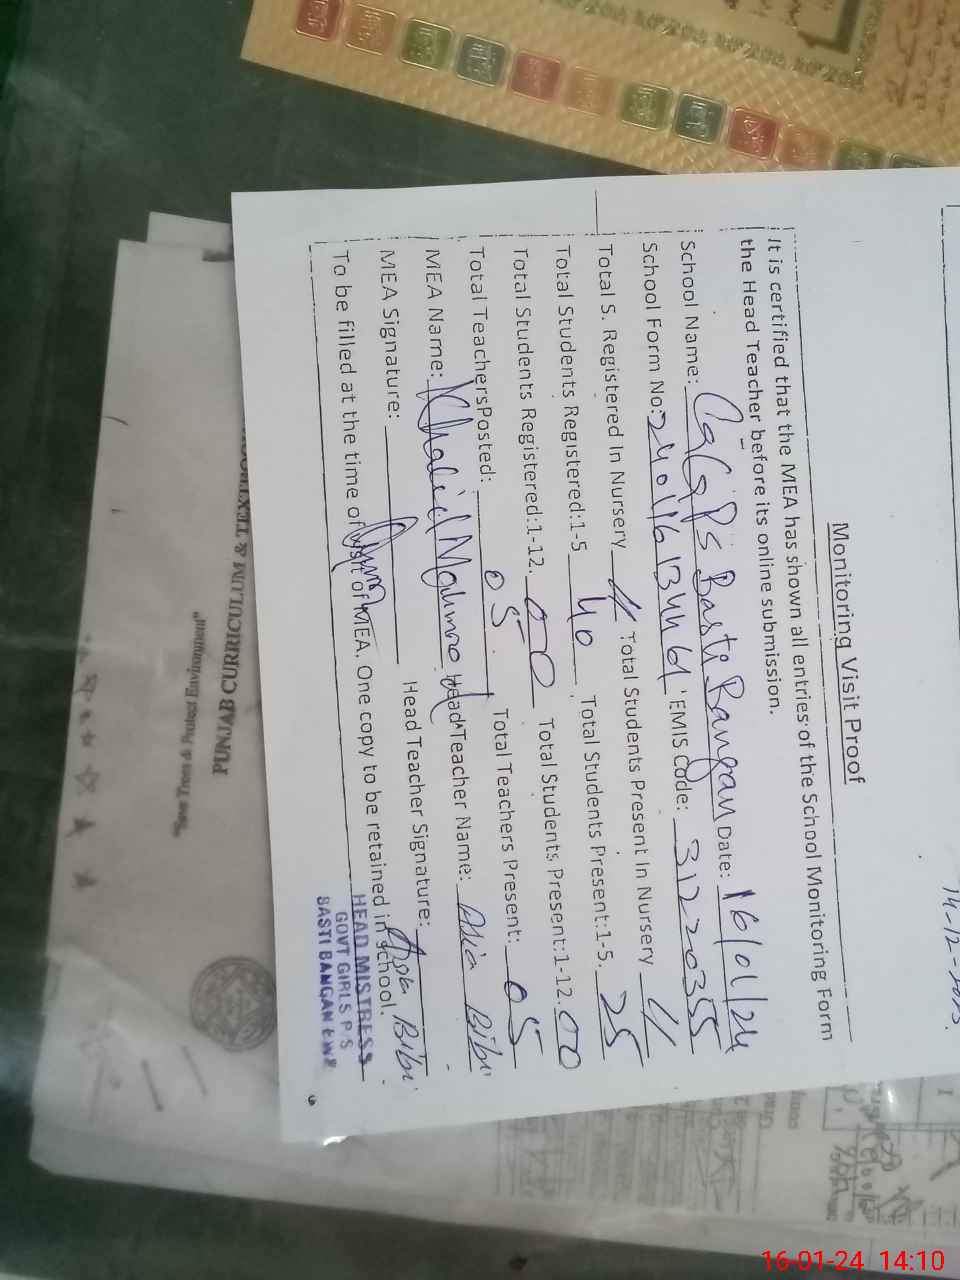 Monitoring Visit Proof
It is certified that the MEA has shown all entries of the School Monitoring Form
the Head Teacher before its online submission.
School Name: GGPS Basti Bangan Date: 16/01/24
School Form No: EMIS Code: 31220355
Total S. Registered In Nursery 11 Total Students Present In Nursery 11
Total Students Registered:1-5 40 Total Students Present:1-5. 25
Total Students Registered:1-12. 00 Total Students Present:1-12. 00
Total TeachersPosted: 05 Total Teachers Present: 05
MEA Name: Khalid Mahmood Head Teacher Name: Asia Bibi
MEA Signature: Head Teacher Signature: Asia Bibi
To be filled at the time of visit of MEA. One copy to be retained in school.
HEAD MISTRESS
GOVT GIRLS P/S
BASTI BANGAN
6
14-12-2023.
PUNJAB CURRICULUM &
"Save Trees & Protect Environment"
16-01-24 14:10